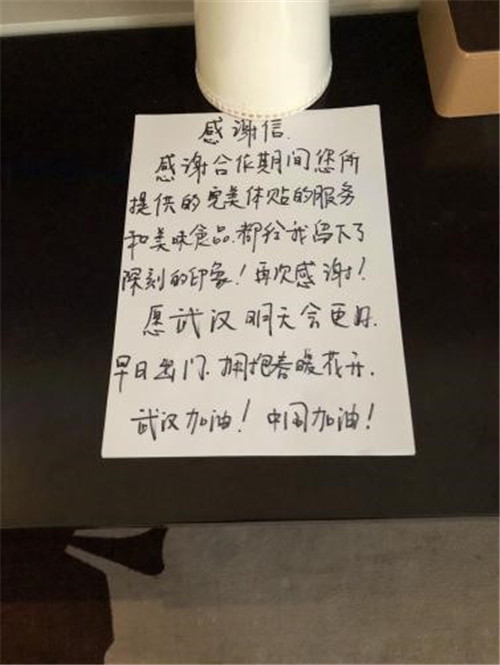 感谢信.
感谢合作期间您所
提供的完美体贴的服务
和美味食品.都给我留下了
深刻的印象!再次感谢!
愿武汉明天会更好.
早日出门.拥抱春暖花开.
武汉加油!中国加油!